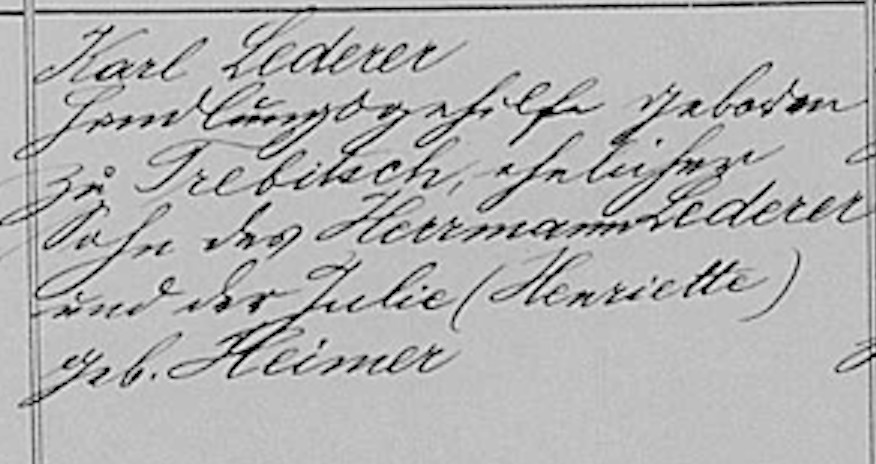 Karl Lederer
Handlungsgehilfe geboren
zu Trebitsch, ehelicher
Sohn des Herrmann Lederer
und der Julie (Henriette)
geb. Heimer